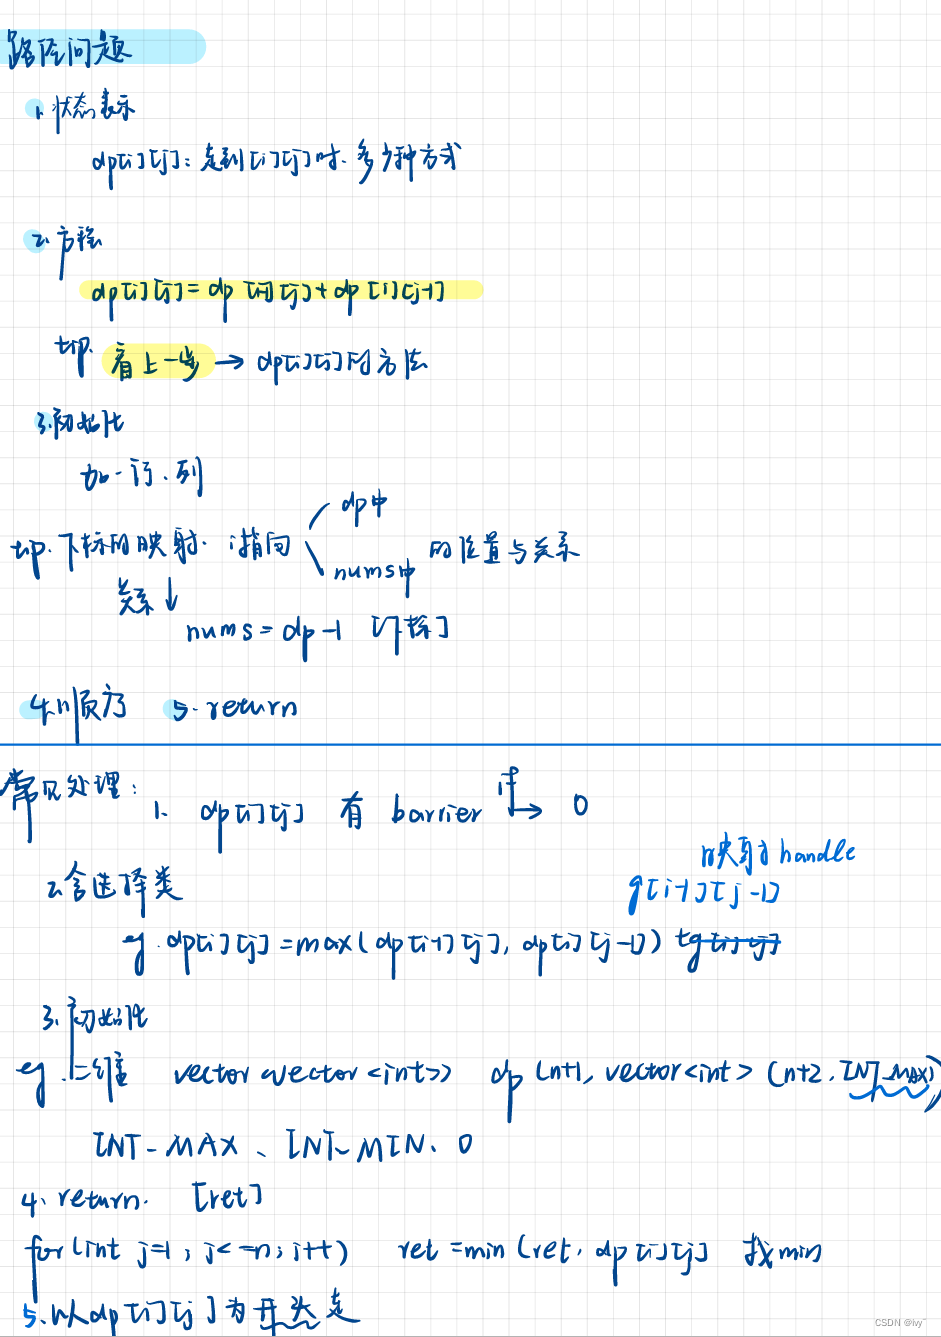 路径问题
1. 状态表示
dp[i][j]: 走到[i][j]时、多少种方式
2. 方程
dp[i][j] = dp[i-1][j] + dp[i][j-1]
tip. 看上一步 → dp[i][j]的方法
3. 初始化
加一行、列
dp中
tip. 下标的映射. i指向 的位置与关系
nums中
关系↓
nums = dp-1 [下标]
4. 顺序 5. return
常见处理:
1. dp[i][j] 有 barrier → 0
映射 handle
2. 含选择类 g[i-1][j-1]
eg. dp[i][j] = max(dp[i-1][j], dp[i][j-1]) +g[i][j]
3. 初始化
eg. 二维 vector<vector<int>> dp(n+1, vector<int>(n+2, INT_MAX))
INT-MAX、INT-MIN、0
4. return. [ret]
for(int j=1; j<=n; j++) ret = min(ret, dp[i][j] 找min
5. 以dp[i][j]为开头走
CSDN @lvy-